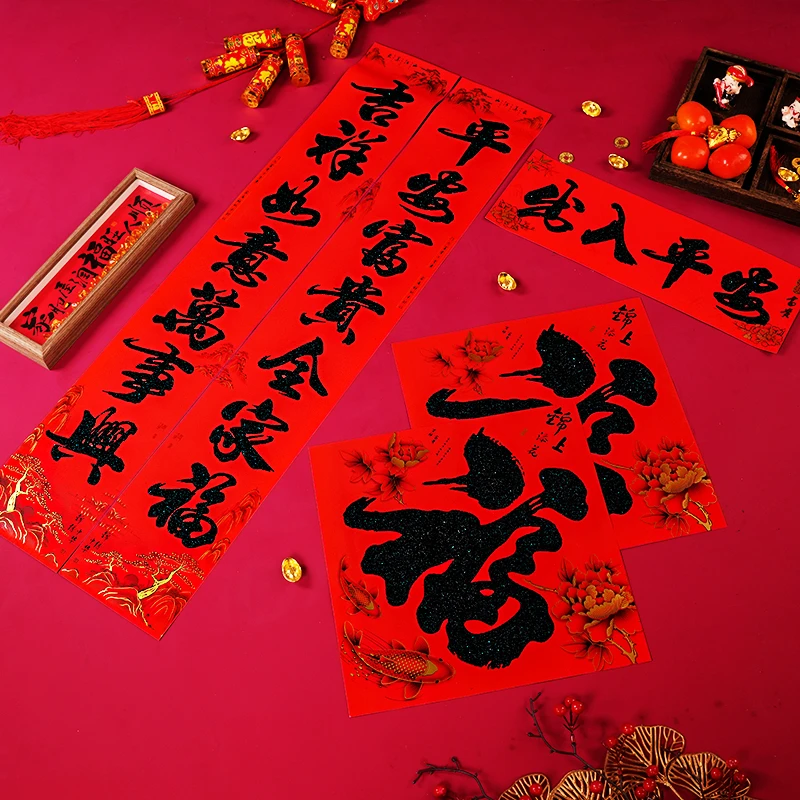 平安富貴全家福
吉祥如意萬事興
出入平安
錦上添花
福
錦上添花
福